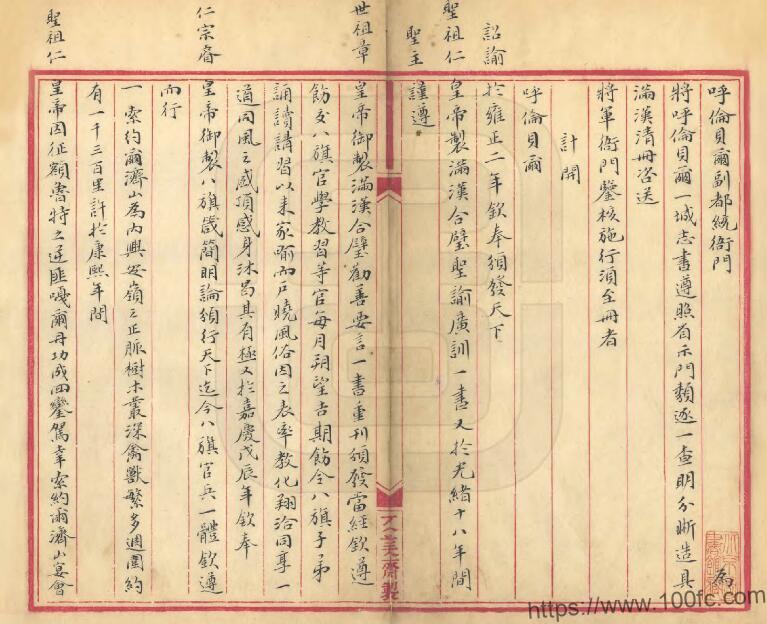 呼倫貝爾副都統衙門　為
將呼倫貝爾一城志書遵照省示門類逐一查明分晰造具
滿漢清冊咨送
將軍衙門鑒核施行須至冊者
計開
呼倫貝爾
詔諭於雍正二年欽奉頒發天下
聖祖仁皇帝製滿漢合璧聖諭廣訓一書又於光緒十八年間
聖主謹遵
世祖章皇帝御製滿漢合璧勸善要言一書重刊頒發當經欽遵
飭交八旗官學教習等官每月朔望吉期飭令八旗子弟
誦讀講習以来家喻而戶曉風俗因之表率教化翔洽同享一
道同風之感頂感身沐曷其有極又於嘉慶戊辰年欽奉
仁宗睿皇帝御製八旗箴簡明論頒行天下迄今八旗官兵一體欽遵
而行
一索約爾濟山為內興安嶺之正脈樹木叢深禽獸繁多週圍約
有一千三百里許於康熙年間
聖祖仁皇帝因征額魯特之逆匪嘎爾丹功成回鑾駕幸索約爾濟山宴會
齋製
https://www.100fc.com